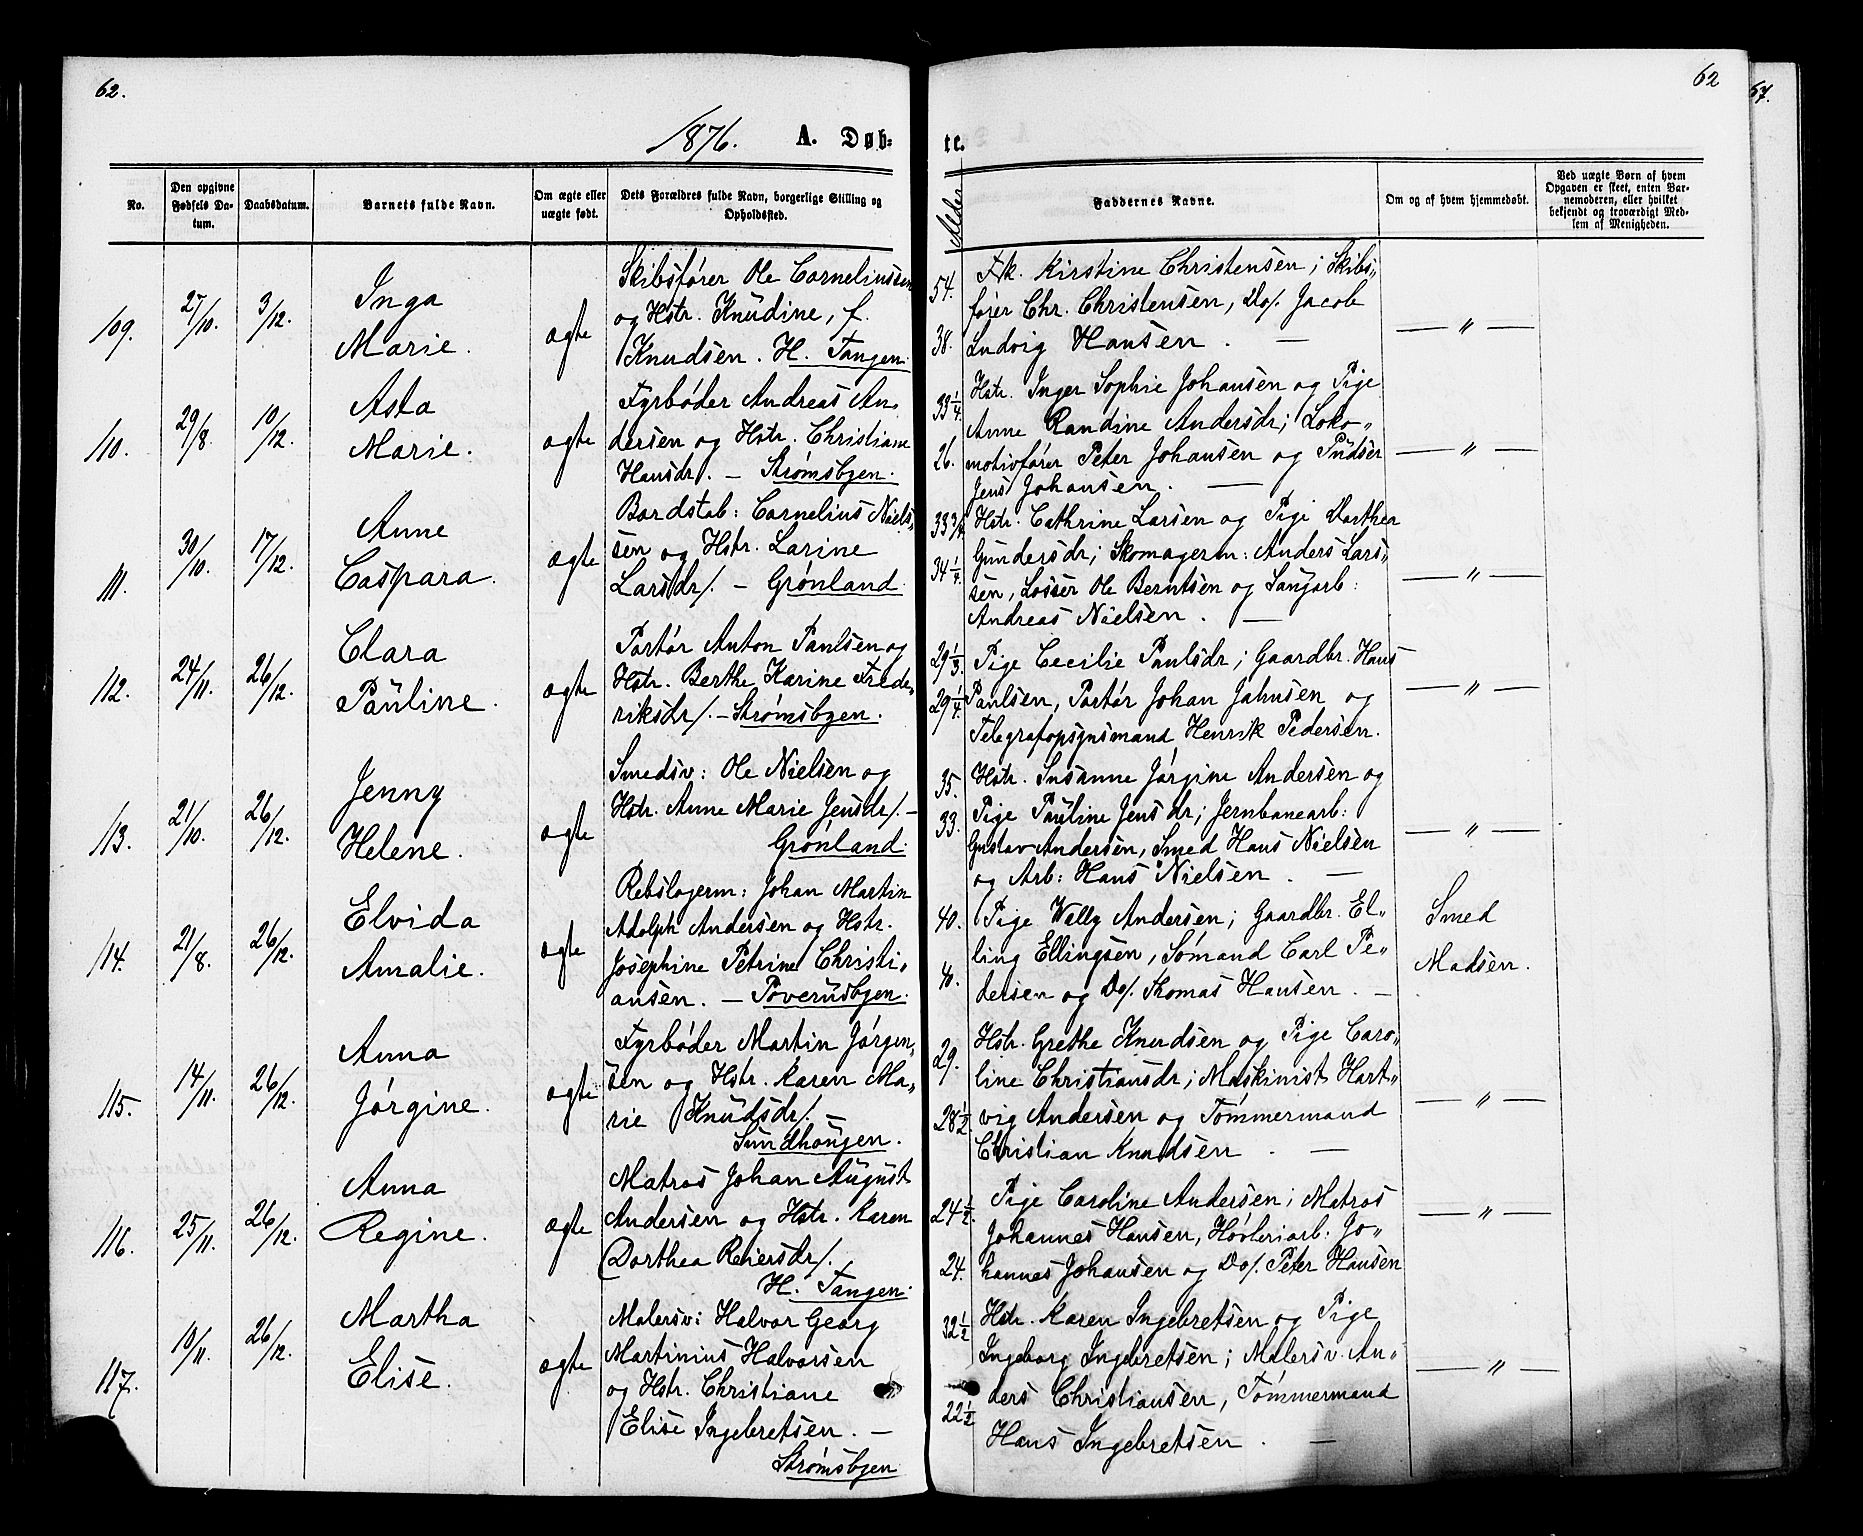 62.
62
67.
1876. A. Døb-
te.
No.
Den opgivne Fødsels Da-
tum.
Daabsdatum.
Barnets fulde Navn.
Om ægte eller
uægte født.
Dets Forældres fulde Navn, borgerlige Stilling og
Opholdssted.
Alder
Faddernes Navne.
Om og af hvem hjemmedøbt.
Ved uægte Børn af hvem
Opgaven er skeet, enten Bar-
nemoderen, eller hvilket
bekjendt og troværdigt Med-
lem af Menigheden.
109. 27/10. 3/12. Inga
Marie. ægte
Skibsfører Ole Corneliussen
og Hstr. Knudine, f.
Knudsen. H. Tangen.
54.
38.
Frk. Kirstine Christensen; Skibs„
fører Chr. Christensen, Do/. Jacob
Ludvig Hansen. —
— „ —
110. 29/8. 10/12. Asta
Marie. ægte
Fyrbøder Andreas An„
dersen og Hstr. Christiane
Hansdr/. — Strømsbyen.
33 1/4.
26.
Hstr. Inger Sophie Johansen og Pige
Anne Randine Andersdr; Loko„
motivfører Peter Johansen og Pudser
Jens Johansen. —
— „ —
111. 30/10. 17/12. Anne
Caspara. ægte
Bordstab: Cornelius Niels„
sen og Hstr. Larine
Larsdr/. — Grønland.
33 3/4
34 1/4.
Hstr. Cathrine Larsen og Pige Dorthea
Gundersdr; Skomagerm: Anders Lars„
sen, Losser Ole Berntsen og Saugarb:
Andreas Nielsen. —
— „ —
112. 24/11. 26/12. Clara
Pauline. ægte
Portør Anton Paulsen og
Hstr. Berthe Karine Frede„
riksdr/. — Strømsbyen.
29 1/3.
29 1/4.
Pige Cecilie Paulsdr; Gaardbr. Hans
Paulsen, Portør Johan Jahnsen og
Telegrafopsynsmand Henrik Pedersen.
— „ —
113. 21/10. 26/12. Jenny
Helene. ægte
Smedsv: Ole Nielsen og
Hstr. Anne Marie Jensdr/. —
Grønland.
35.
33.
Hstr. Susanne Jørgine Andersen og
Pige Pauline Jensdr; Jernbanearb:
Gustav Andersen, Smed Hans Nielsen
og Arb: Hans Nielsen. —
— „ —
114. 21/8. 26/12. Elvida
Amalie. ægte
Rebslagerm: Johan Martin
Adolph Andersen og Hstr.
Josephine Petrine Christi„
ansen. — Poverudbyen.
40.
40.
Pige Wally Andersen; Gaardbr. El„
ling Ellingsen, Sømand Carl Pe„
dersen og Do/. Thomas Hansen. —
Smed
Madsen.
115. 14/11. 26/12. Anna
Jørgine. ægte
Fyrbøder Martin Jørgen„
sen og Hstr. Karen Ma„
rie Knudsdr/. —
Sundhougen.
29.
28 1/2.
Hstr. Grethe Knudsen og Pige Caro„
line Christiansdr; Maskinist Hart„
vig Andersen og Tømmermand
Christian Knudsen. —
— „ —
116. 25/11. 26/12. Anna
Regine. ægte
Matros Johan August
Andersen og Hstr. Karen
Dorthea Reiersdr/.
H. Tangen.
24 1/2.
24.
Pige Caroline Andersen; Matros
Johannes Hansen, Høvleriarb: Jo„
hannes Johansen og Do/. Peter Hansen
— „ —
117. 10/11. 26/12. Martha
Elise. ægte
Malersv: Halvor Georg
Martinius Halvorsen
og Hstr. Christiane
Elise Ingebretsen. —
Strømsbyen
32 1/2
22 1/2
Hstr. Karen Ingebretsen og Pige
Ingeborg Ingebretsen; Malersv. An„
ders Christiansen, Tømmermand
Hans Ingebretsen. —
— „ —